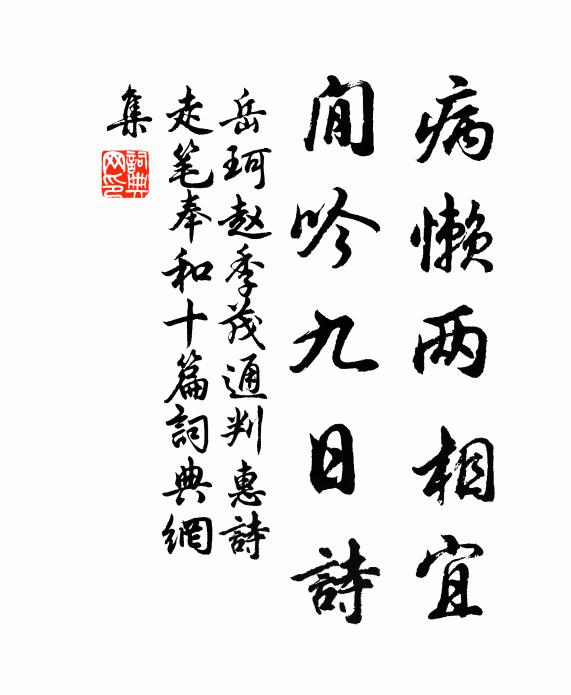 病懒两相宜
閒吟九日詩
岳珂赵季茂通判惠詩
走笔奉和十篇詞典網
集
詞典網印